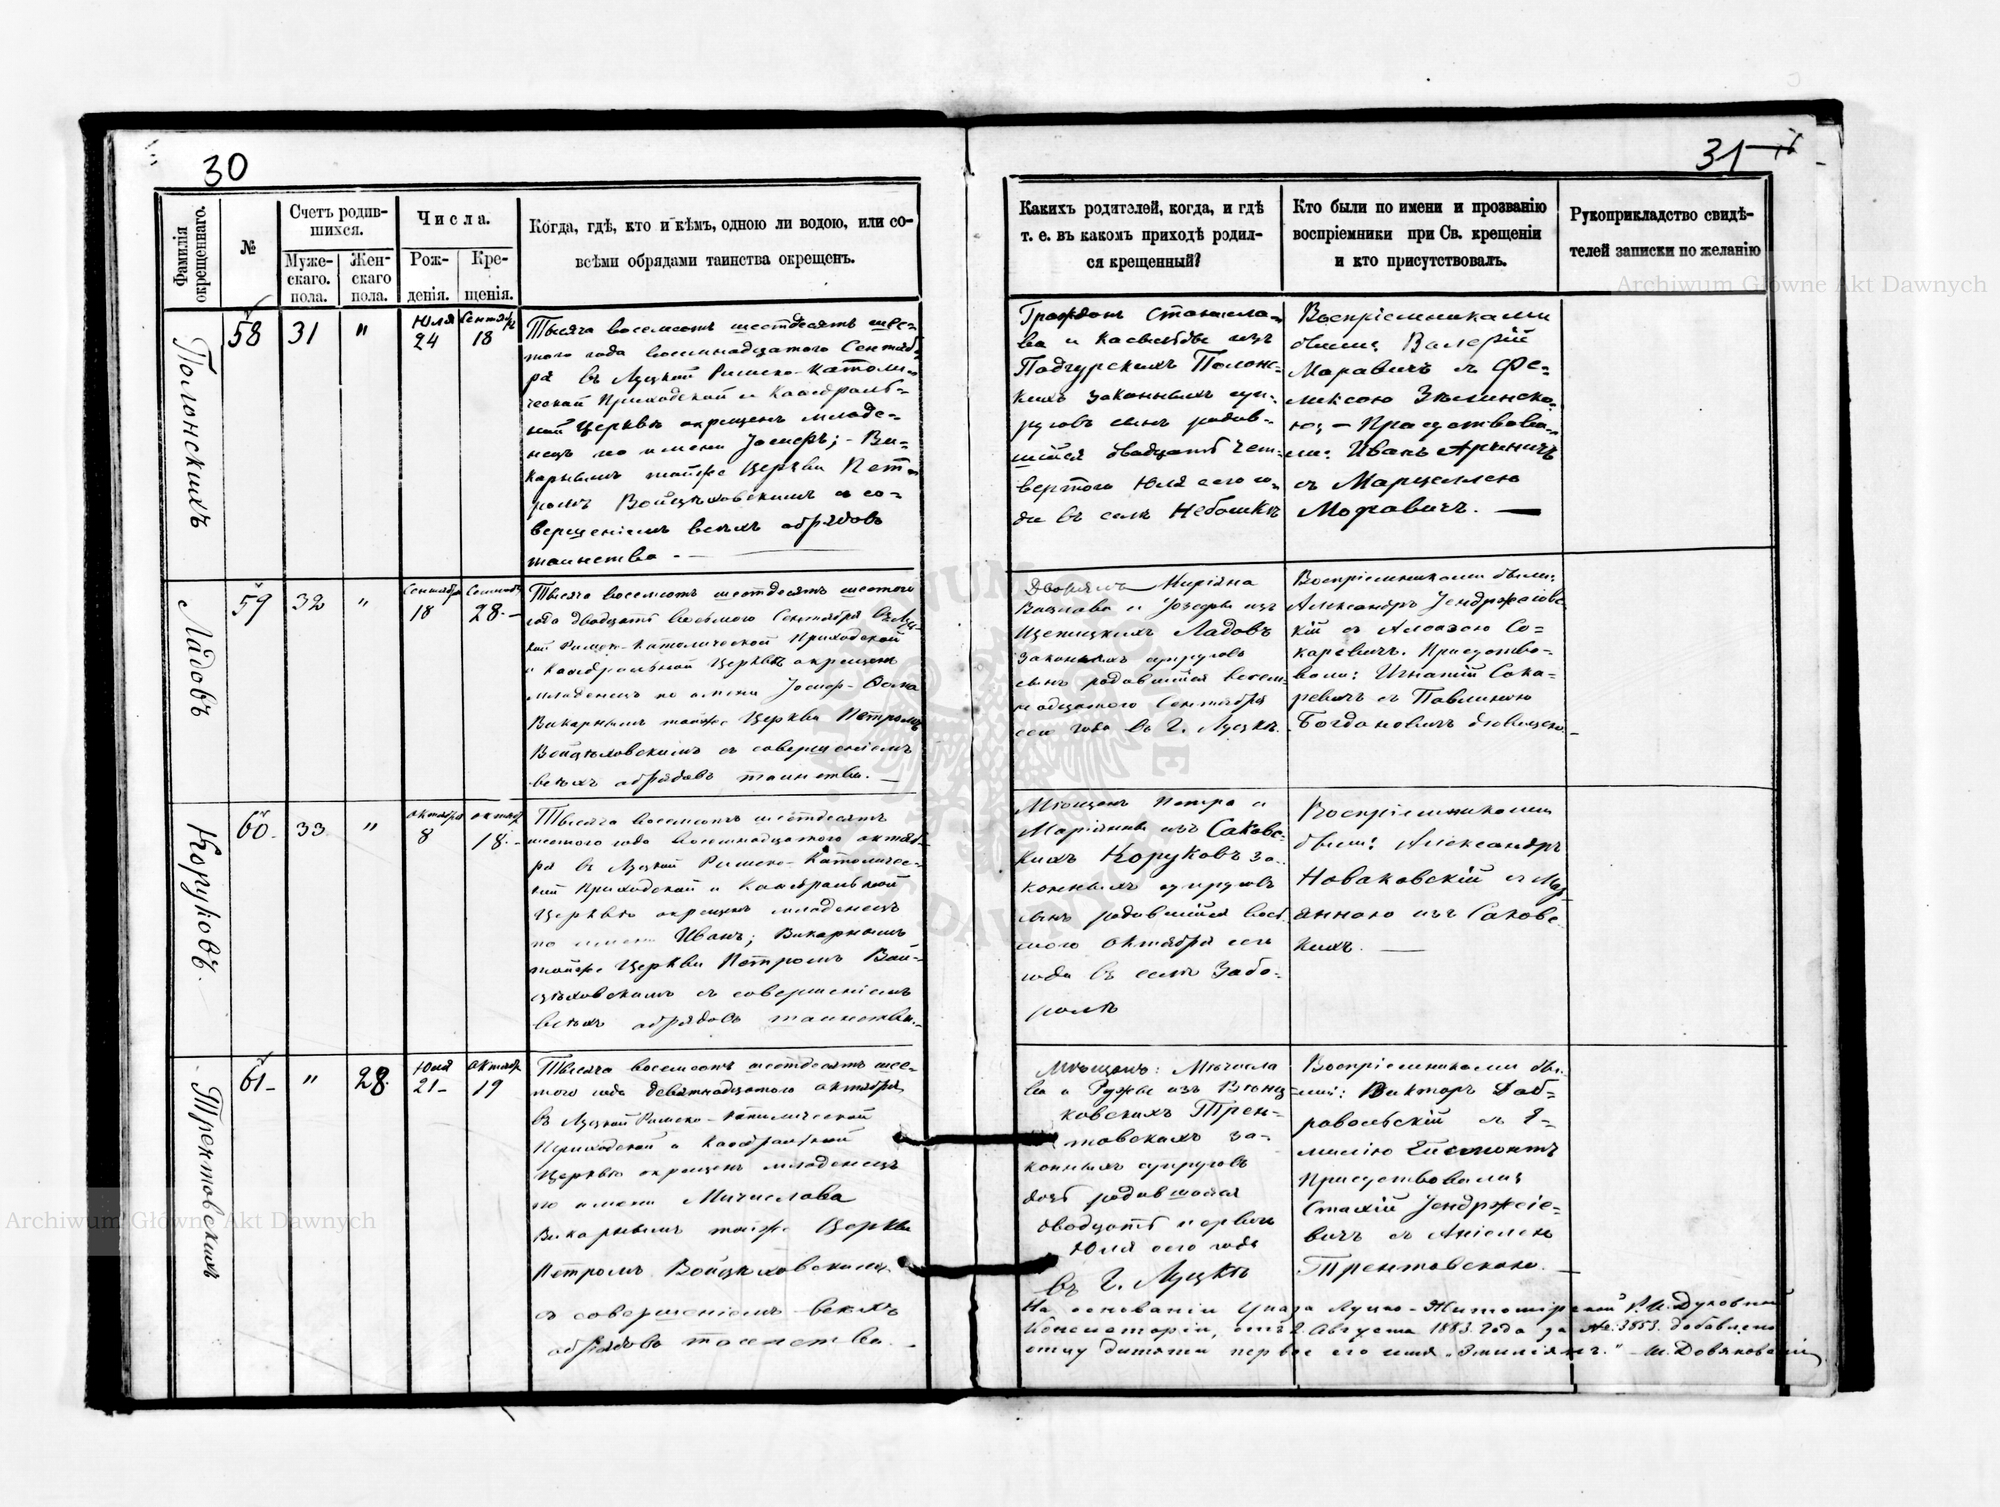 30
Фамилія окрещеннаго.
№
Счетъ родив-
шихся.
Муже-
скаго.
пола.
Жен-
скаго
пола.
Числа.
Рож-
денія.
Кре-
щенія.
Когда, гдѣ, кто и кѣмъ, одною ли водою, или со-
всѣми обрядами таинства окрещенъ.
Полонскихъ
58
31
"
Юля
24
Сентяб
18
Тысяча восемсотъ шестдесятъ шес-
того года восемнадцатого Сентяб-
ря въ Луцкой Римско-Католи-
ческой Приходской и Кафедраль-
ной Церквѣ окрещенъ младе-
нецъ по имени Іосифъ; - Ви-
карнымъ тойже Церкви Пет-
ромъ Войцѣховскимъ с со-
вершеніемъ всѣхъ обрядовъ
таинства. -
Ладовъ
59
32
"
Сентября
18
28. -
Тысяча восемсотъ шестдесятъ шестого
года двадцать восьмого Сентября въ Луц-
кой Римско-Католической Приходской
и Кафедральной Церквѣ окрещенъ
младенецъ по имени Іосиф-
Викарнымъ тойже Церкви Петромъ
Войцѣховскимъ съ совершеніемъ
всѣхъ обрядовъ таинства. -
Коруковъ.
60.
33
"
октября
8
октяб
18. -
Тысяча восемсотъ шестдесятъ
шестого года восемнадцатого октяб-
ря въ Луцкой Римско-Католичес-
кой Приходской и Кафедральной
Церквѣ окрещенъ младенецъ
по имени Иванъ; Викарнымъ
тойже Церкви Петромъ Вой-
цѣховскимъ съ совершеніемъ
всѣхъ обрядовъ таинства. -
Трентовскихъ
61 -
"
28.
Юля
21 -
октяб
19
Тысяча восемсотъ шестдесятъ шес-
того года девятнадцатого октября
въ Луцкой Римско-Католической
Приходской и Кафедральной
Церквѣ окрещенъ младенецъ
по имени Мичислава
Викарнымъ тойже Церкви
Петромъ Войцѣховскимъ
съ совершеніемъ всѣхъ
обрядовъ таинства. -
31
Какихъ родителей, когда, и гдѣ
т. е. въ какомъ приходѣ родил-
ся крещенный?
Кто были по имени и прозванію
воспріемники при Св. крещеніи
и кто присутствовалъ.
Рукоприкладство свидѣ-
телей записки по желанію
Гражданъ Станисла-
ва и из
Подгурскихъ Полонс-
кихъ законныхъ суп-
руговъ сынъ родив-
шійся двадцать чет-
вертого Юля сего го-
да въ селѣ
Воспріемниками
были: Валерій
Маравичъ с Фе-
ликсою Зѣлинско-
ю; - Присутствова-
ли: Иванъ
съ Марцеллею
Моравичъ. -
Дворянъ
Вацлава и Іозефы изъ
Ладовъ
законныхъ супруговъ
сынъ родившійся восем-
надцатого Сентября
сего года въ г. Луцкѣ.
Воспріемниками были:
Александръ Јендржеіовс
кій с Со-
каревичъ. Присутство-
вали: Игнатій Сока-
ревичъ съ Павлиною
Богдановичъ
Мѣщанъ Петра и
Маріянны изъ Саковс-
кихъ Коруковъ за-
конныхъ супруговъ
сынъ родившійся вось-
мого Октября сего
года въ селѣ Забо-
ролѣ
Воспріемниками
были: Александръ
Новаковскій с Мар
янною изъ Саковс
кихъ. -
Мѣщанъ: Мичисла
ва и Ружи изъ
ковскихъ Трен-
товскихъ за-
конныхъ супруговъ
дочь родившаяся
двадцать первого
Юля сего года
въ г. Луцкѣ
Воспріемниками бы-
ли: Викторъ Доб-
ровольскій съ Е-
милію
Присутствовали:
Стахій Јендржіе-
вичъ съ Аніелею
Трентовскою. -
На основаніи Указа Луцко-Житомірской Р. К. Духовной
Консисторіи, отъ 2 Августа 1883. года за № 3853. добавлено
отцу дитяти первое его имя „Эмиліянъ.“
Archiwum Główne Akt Dawnych
Archiwum Główne Akt Dawnych